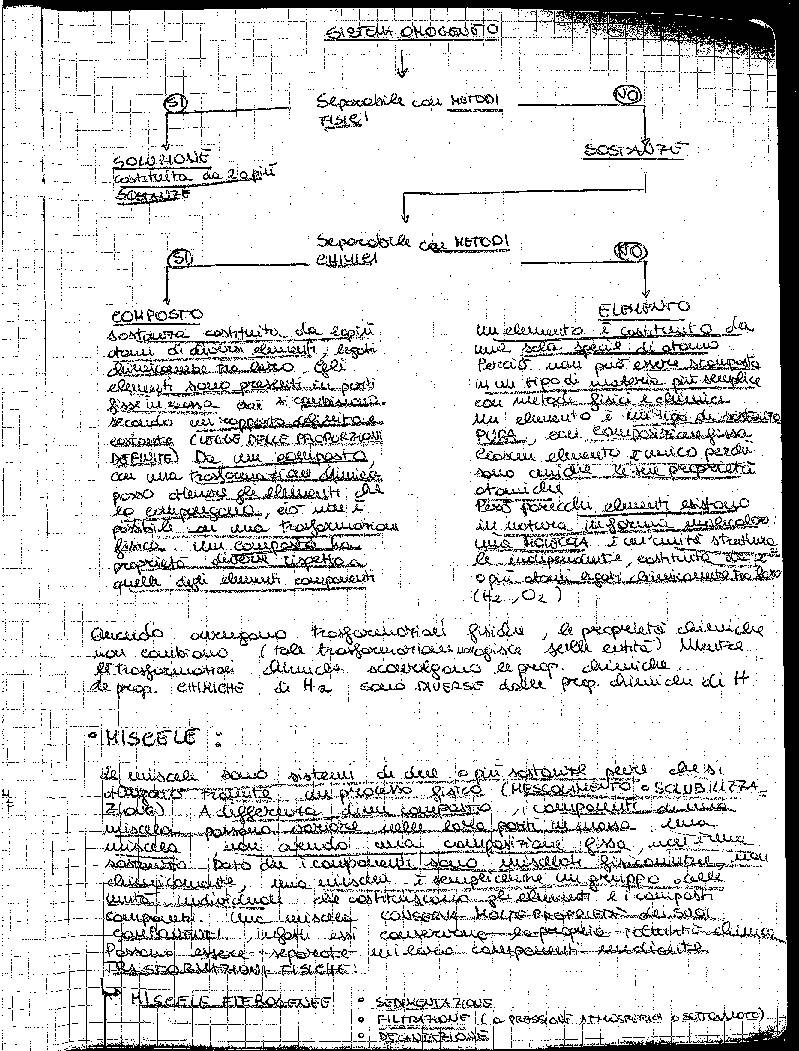 SISTEMA OMOGENEO
SI
Separabile con METODI
FISICI
NO
SOLUZIONE
costituita da 2 o più
SOSTANZE
SOSTANZE
SI
Separabile con METODI
CHIMICI
NO
COMPOSTO
sostanza costituita da 2 o più
atomi di diversi elementi, legati
chimicamente tra loro. Gli
elementi sono presenti in parti
fisse in massa si combinano
secondo un rapporto definito e
costante (LEGGE DELLE PROPORZIONI
DEFINITE) Da un composto
con una trasformazione chimica
posso ottenere gli elementi che
lo compongono, ciò non è
possibile con una trasformazione
fisica. Un composto ha
proprietà diverse rispetto a
quelle degli elementi componenti
ELEMENTO
un elemento è costituito da
una sola specie di atomo.
Perciò non può essere scomposto
in un tipo di materia più semplice
con metodi fisici e chimici
Un elemento è un tipo di sostanza
PURA, con composizione fissa
Ciascun elemento è unico perché
sono le sue proprietà
atomiche
Però parecchi elementi esistono
in natura in forma molecolare:
una MOLECOLA è un'unità struttura
le indipendente, costituita da 2
o più atomi legati chimicamente tra loro
(H2, O2)
Quando avvengono trasformazioni fisiche, le proprietà chimiche
non cambiano (tale trasformazione agisce sulle entità) Mentre
le trasformazioni chimiche sconvolgono le prop. chimiche.
Le prop. CHIMICHE di H2 sono DIVERSE dalle prop. chimiche di H
• MISCELE :
Le miscele sono sistemi di due o più sostanze pure che si
ottengono tramite un processo fisico (MESCOLAMENTO o SOLUBILIZZA-
ZIONE) A differenza di un composto, i componenti di una
miscela possono variare nelle loro parti in massa. Una
miscela non avendo una composizione fissa, non è una
sostanza. Dato che i componenti sono miscelati fisicamente, non
chimicamente, una miscela è semplicemente un gruppo delle
unità individuali che costituiscono gli elementi e i composti
componenti. Una miscela CONSERVA MOLTE PROPRIETÀ dei SUOI
COMPONENTI, infatti essi conservano le proprie identità chimiche
Possono essere separate nei loro componenti mediante
TRASFORMAZIONI FISICHE:
MISCELE ETEROGENEE • SEDIMENTAZIONE
• FILTRAZIONE (a PRESSIONE ATMOSFERICA o SOTTOVUOTO)
• DECANTAZIONE